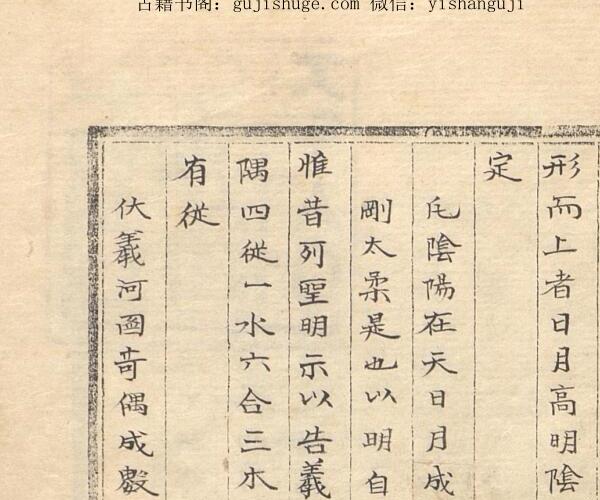 古籍书阁：gujishuge.com 微信：yishanguji
形而上者日月高明陰
定
凡陰陽在天日月成
剛太柔是也以明自
惟昔列聖明示以告羲
隅四從一水六合三木
有從
伏羲河圖奇偶成數